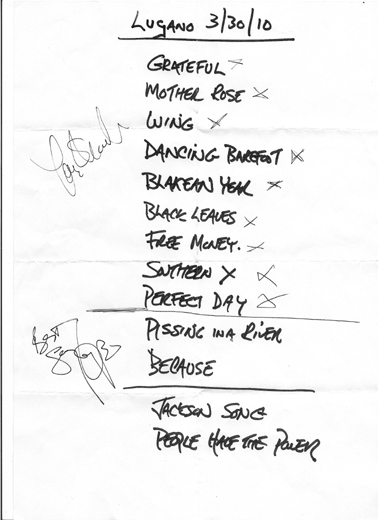 LUGANO 3/30/10
GRATEFUL X
MOTHER ROSE X
WING X
DANCING BAREFOOT X
BLAKEAN YEAR X
BLACK LEAVES X
FREE MONEY. X
SOUTHERN X X
PERFECT DAY X
PISSING IN A RIVER
BECAUSE
JACKSON SONG
PEOPLE HAVE THE POWER